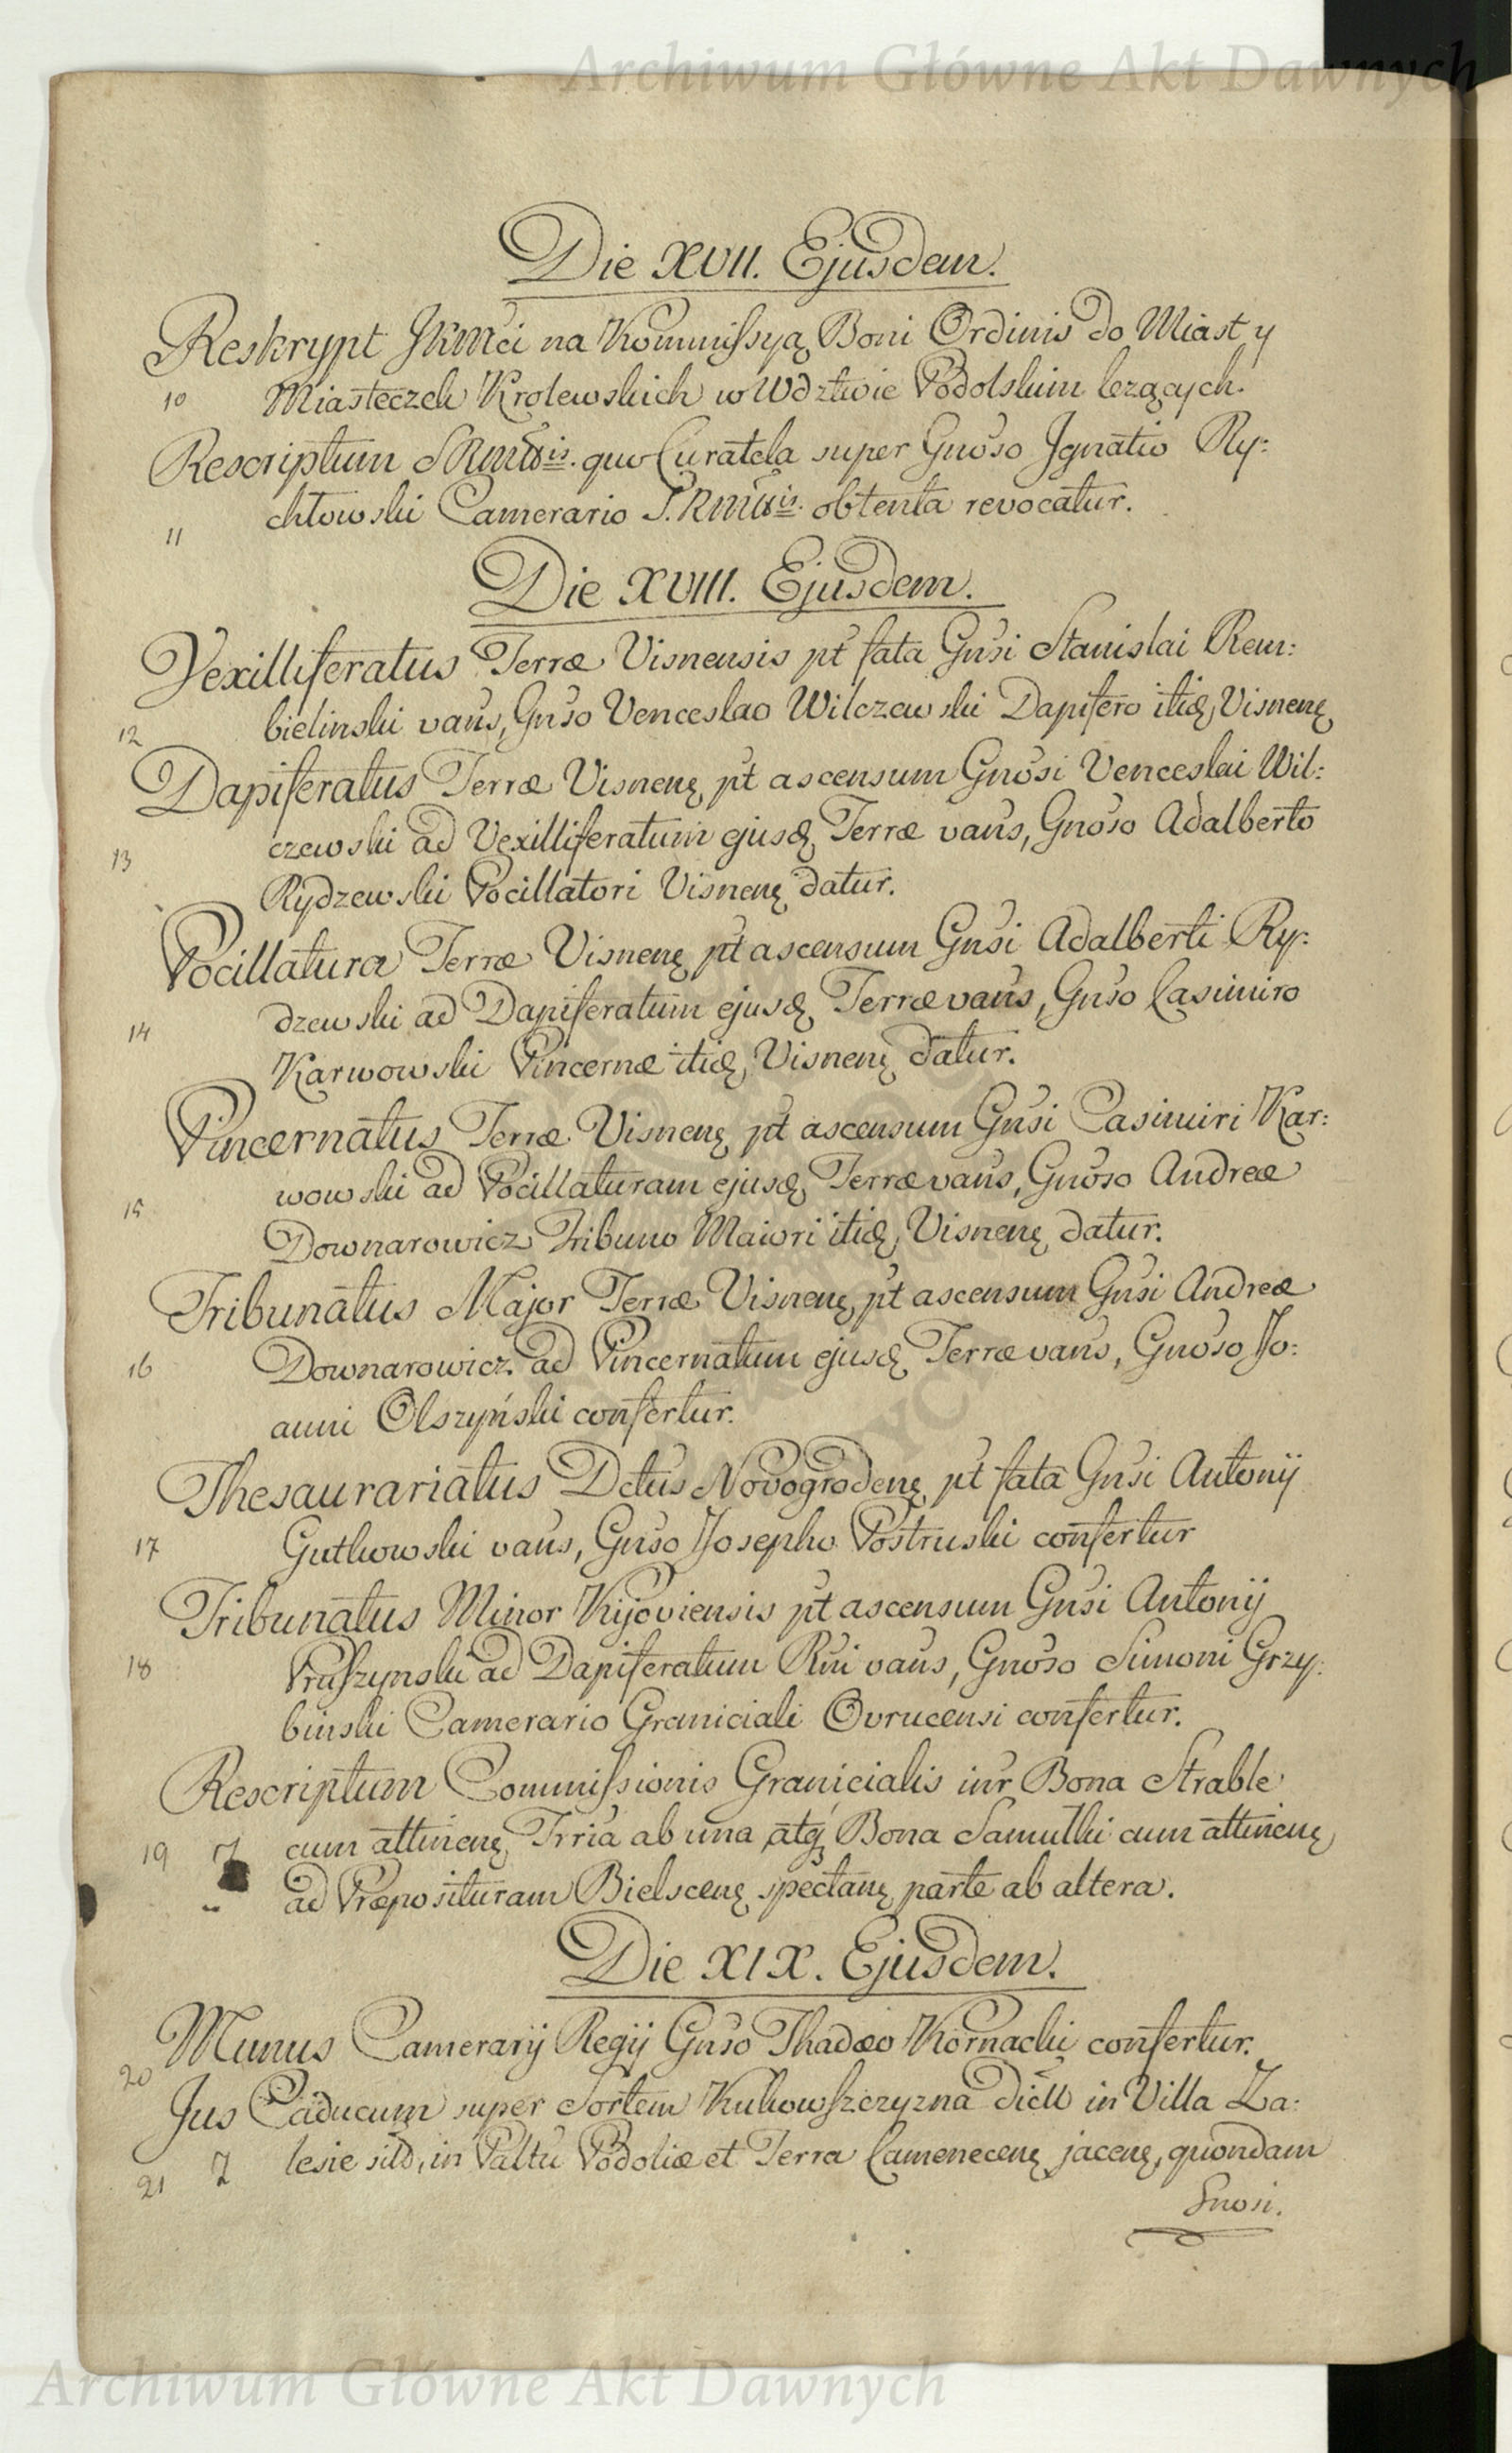 Archiwum Główne Akt Dawnych
Die XVII. Ejusdem.
Reskrypt JKMci na Kommissyą Boni Ordinis do Miast y
10 Miasteczek Krolewskich w Wdztwie Podolskim leżących.
Rescriptum SRMttis. quo Curatela super Gnoso Ignatio Ry:
11 chłowski Camerario S.RMttis. obtenta revocatur.
Die XVIII. Ejusdem.
Vexilliferatus Terræ Visnensis pt fata Gnsi Stanislai Rem:
12 bielinski vans, Gnso Venceslao Wilczewski Dapifero itidę Visnenę
Dapiferatus Terræ Visnenę pt ascensum Gnosi Venceslai Wil:
13 czewski ad Vexilliferatum ejusdę Terræ vans, Gnoso Adalberto
Rydzewski Pocillatori Visnenę datur.
Pocillatura Terræ Visnenę pt ascensum Gnsi Adalberti Ry:
14 dzewski ad Dapiferatum ejusdę Terræ vans, Gnso Casimiro
Karwowski Pincernæ itidę Visnenę datur.
Pincernatus Terræ Visnenę pt ascensum Gnsi Casimiri Kar:
15 wowski ad Pocillaturam ejusdę Terræ vans, Gnoso Andreæ
Downarowicz Tribuno Maiori itidę Visnenę datur.
Tribunatus Major Terræ Visnenę pt ascensum Gnsi Andreæ
16 Downarowicz ad Pincernatum ejusdę Terræ vans, Gnoso Jo:
anni Olszyński confertur.
Thesaurariatus Dctus Novogrodenę pt fata Gnsi Antonij
17 Gutkowski vans, Gnso Josepho Postruski confertur
Tribunatus Minor Kijoviensis pt ascensum Gnsi Antonij
18 Pruszynski ad Dapiferatum Rni vans, Gnoso Simoni Grzy:
binski Camerario Graniciali Ovrucensi confertur.
Rescriptum Commissionis Granicialis inr Bona Strable
19 cum attinenę Trria ab una atq Bona Samulki cum attinenę
ad Præposituram Bielscenę spectanę parte ab altera.
Die XIX. Ejusdem.
20 Munus Camerarij Regij Gnso Thadæo Kornacki confertur.
Jus Caducum super Sortem Kukowszczyzna dictt in Villa Za:
21 lesie sitt, in Paltu Podoliæ et Terra Camenecenę jacenę, quondam
Gnosi.
Archiwum Główne Akt Dawnych